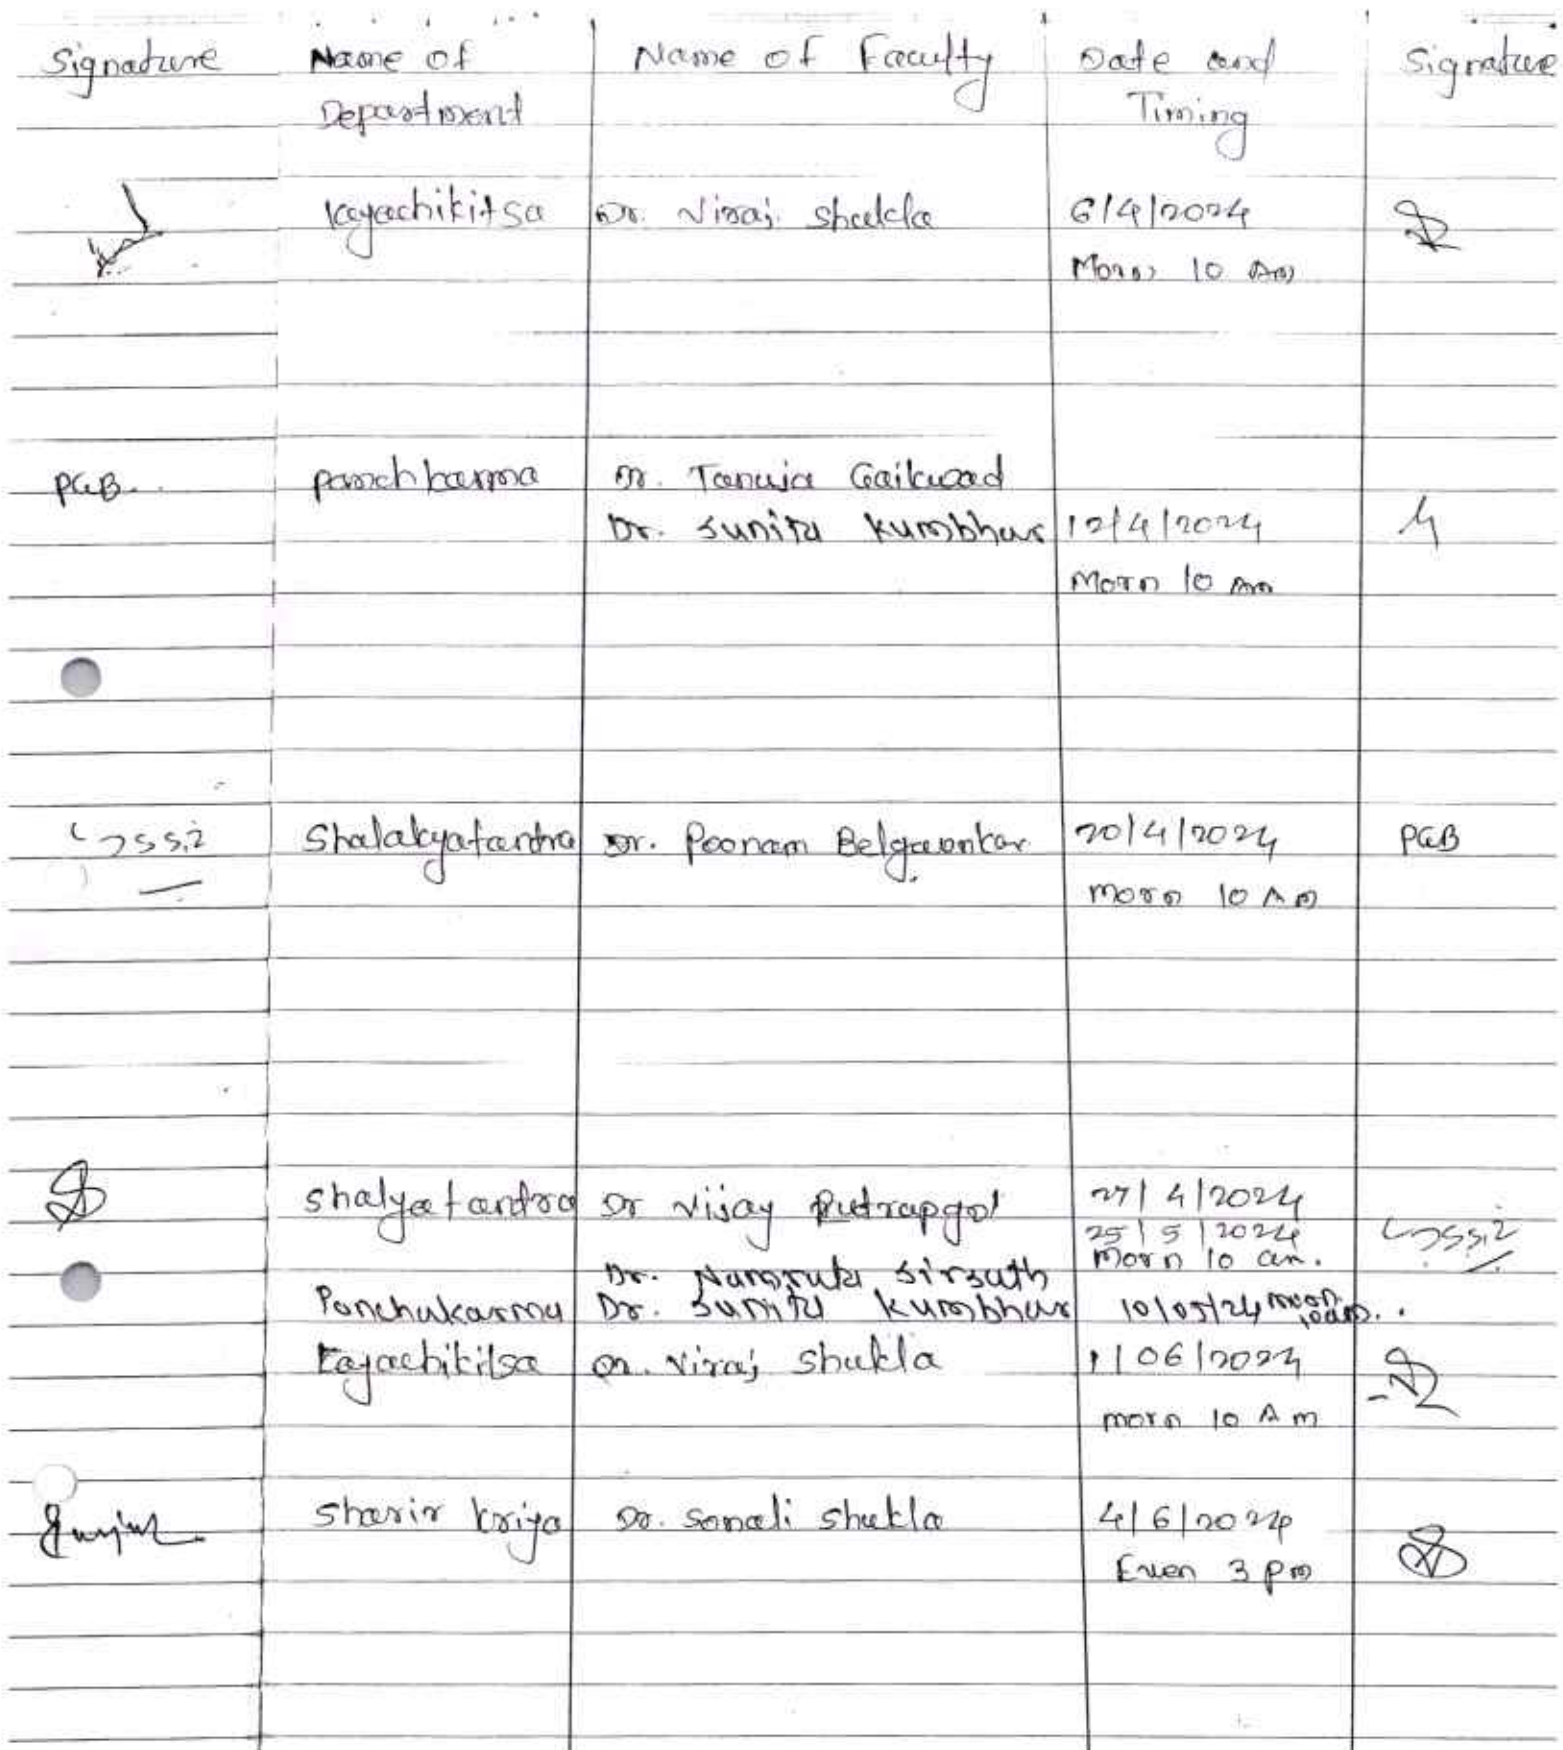 Signature Name of Name of Faculty Date and Signature
Department Timing
Kayachikitsa Dr. Viraj. Shukla 6/4/2024
Morn 10 Am
PGB. Panchkarma Dr. Tanuja Gaikwad
Dr. Sunita Kumbhar 12/4/2024
Morn 10 Am
Shalakyatantra Dr. Poonam Belgaonkar 20/4/2024 PGB
Morn 10 Am
Shalyatantra Dr Vijay 27/4/2024
25/5/2024
Morn 10 am.
Dr. Namrata Sirsath
Panchakarma Dr. Sunita Kumbhar 10/05/24 morn 10am..
Kayachikitsa Dr. Viraj Shukla 1/06/2024
morn 10 Am
Sharir Kriya Dr. Sonali Shukla 4/6/2024
Even 3 pm